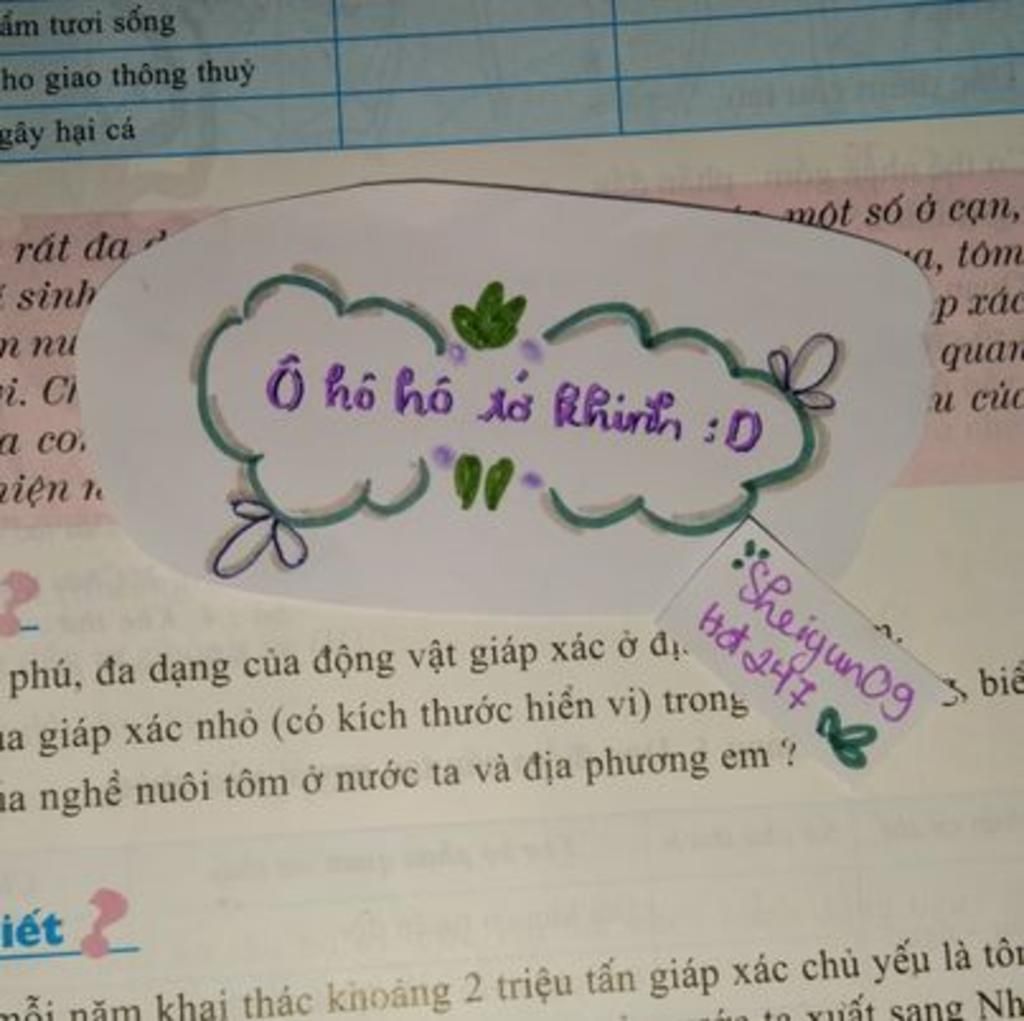 ẩm tươi sống
ho giao thông thuỷ
gây hại cá
rất đa
một số ở cạn,
sinh
a, tôm
n nu
p xác
i. Ch
quan
a co
u của
hiện n
Ô hô hô xớ khinh :D
Sheiyun09
Hdt 247
phú, đa dạng của động vật giáp xác ở đị
ua giáp xác nhỏ (có kích thước hiển vi) trong
g, biể
ủa nghề nuôi tôm ở nước ta và địa phương em ?
iết ?
mỗi năm khai thác khoảng 2 triệu tấn giáp xác chủ yếu là tôm
ta xuất sang Nh